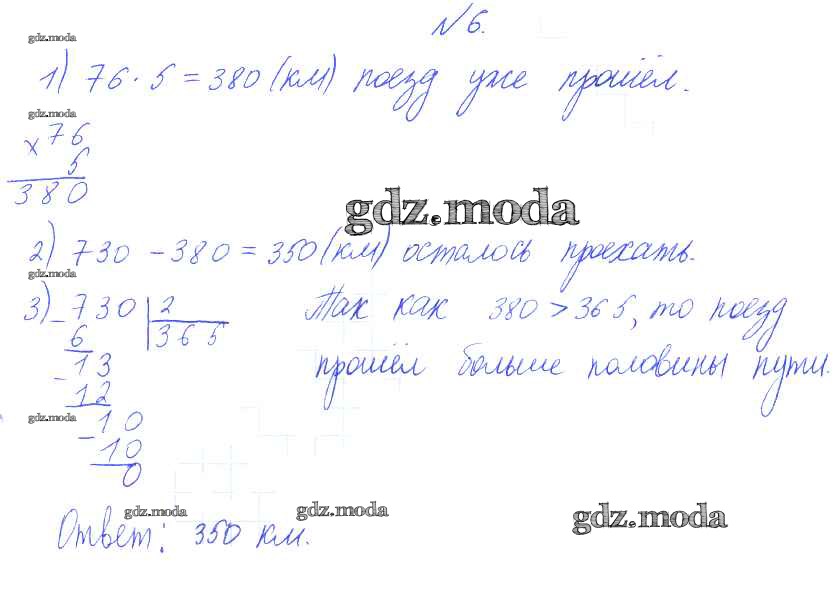 №6.
gdz.moda
1) 76 · 5 = 380 (км) поезд уже прошёл.
gdz.moda
× 76
5
380
gdz.moda
2) 730 - 380 = 350 (км) осталось проехать.
gdz.moda
3) - 730 | 2
6 365
- 13
12
- 10
10
0
Так как 380 > 365, то поезд
прошёл больше половины пути.
gdz.moda
gdz.moda gdz.moda gdz.moda
Ответ: 350 км.